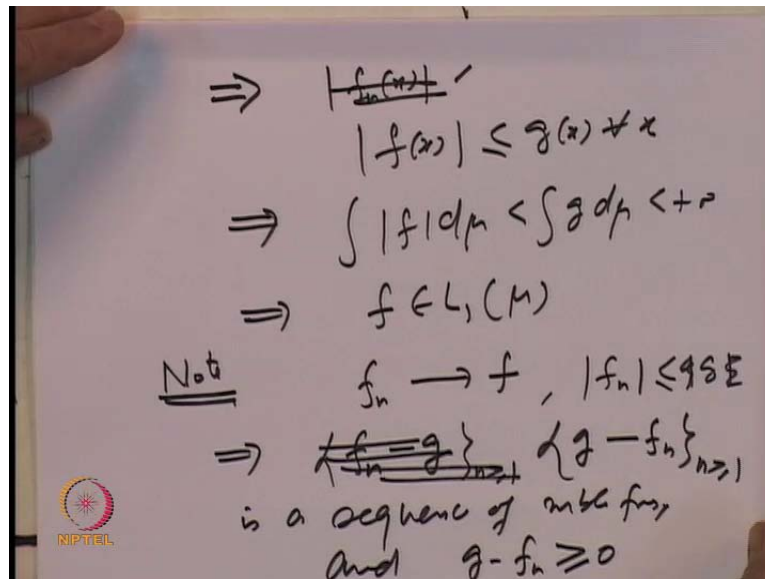 ⇒ |f_n(x)|
|f(x)| ≤ g(x) ∀ x
⇒ ∫ |f| dμ < ∫ g dμ < +
⇒ f ∈ L₁(μ)
Note f_n → f , |f_n| ≤ g
⇒ {f_n = g}_{n≥1} {g - f_n}_{n≥1}
is a sequence of mble fns,
and g - f_n ≥ 0
NPTEL